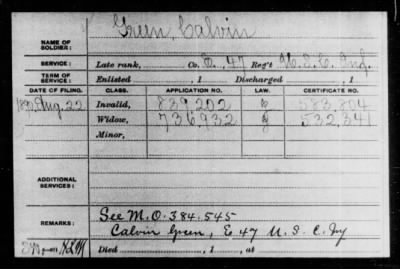 NAME OF SOLDIER: Green, Calvin
SERVICE: Late rank, Co. E, 47 Reg't U.S.C. Inf.
TERM OF SERVICE: Enlisted , 1 Discharged , 1
DATE OF FILING. CLASS. APPLICATION NO. LAW. CERTIFICATE NO.
1890 Aug. 22 Invalid, 839,202 583,804
Widow, 736,932 532,341
Minor,
ADDITIONAL SERVICES:
REMARKS: See M.O. 384.545
Calvin Green, E 47 U.S.C. Iny
Died , 1 , at